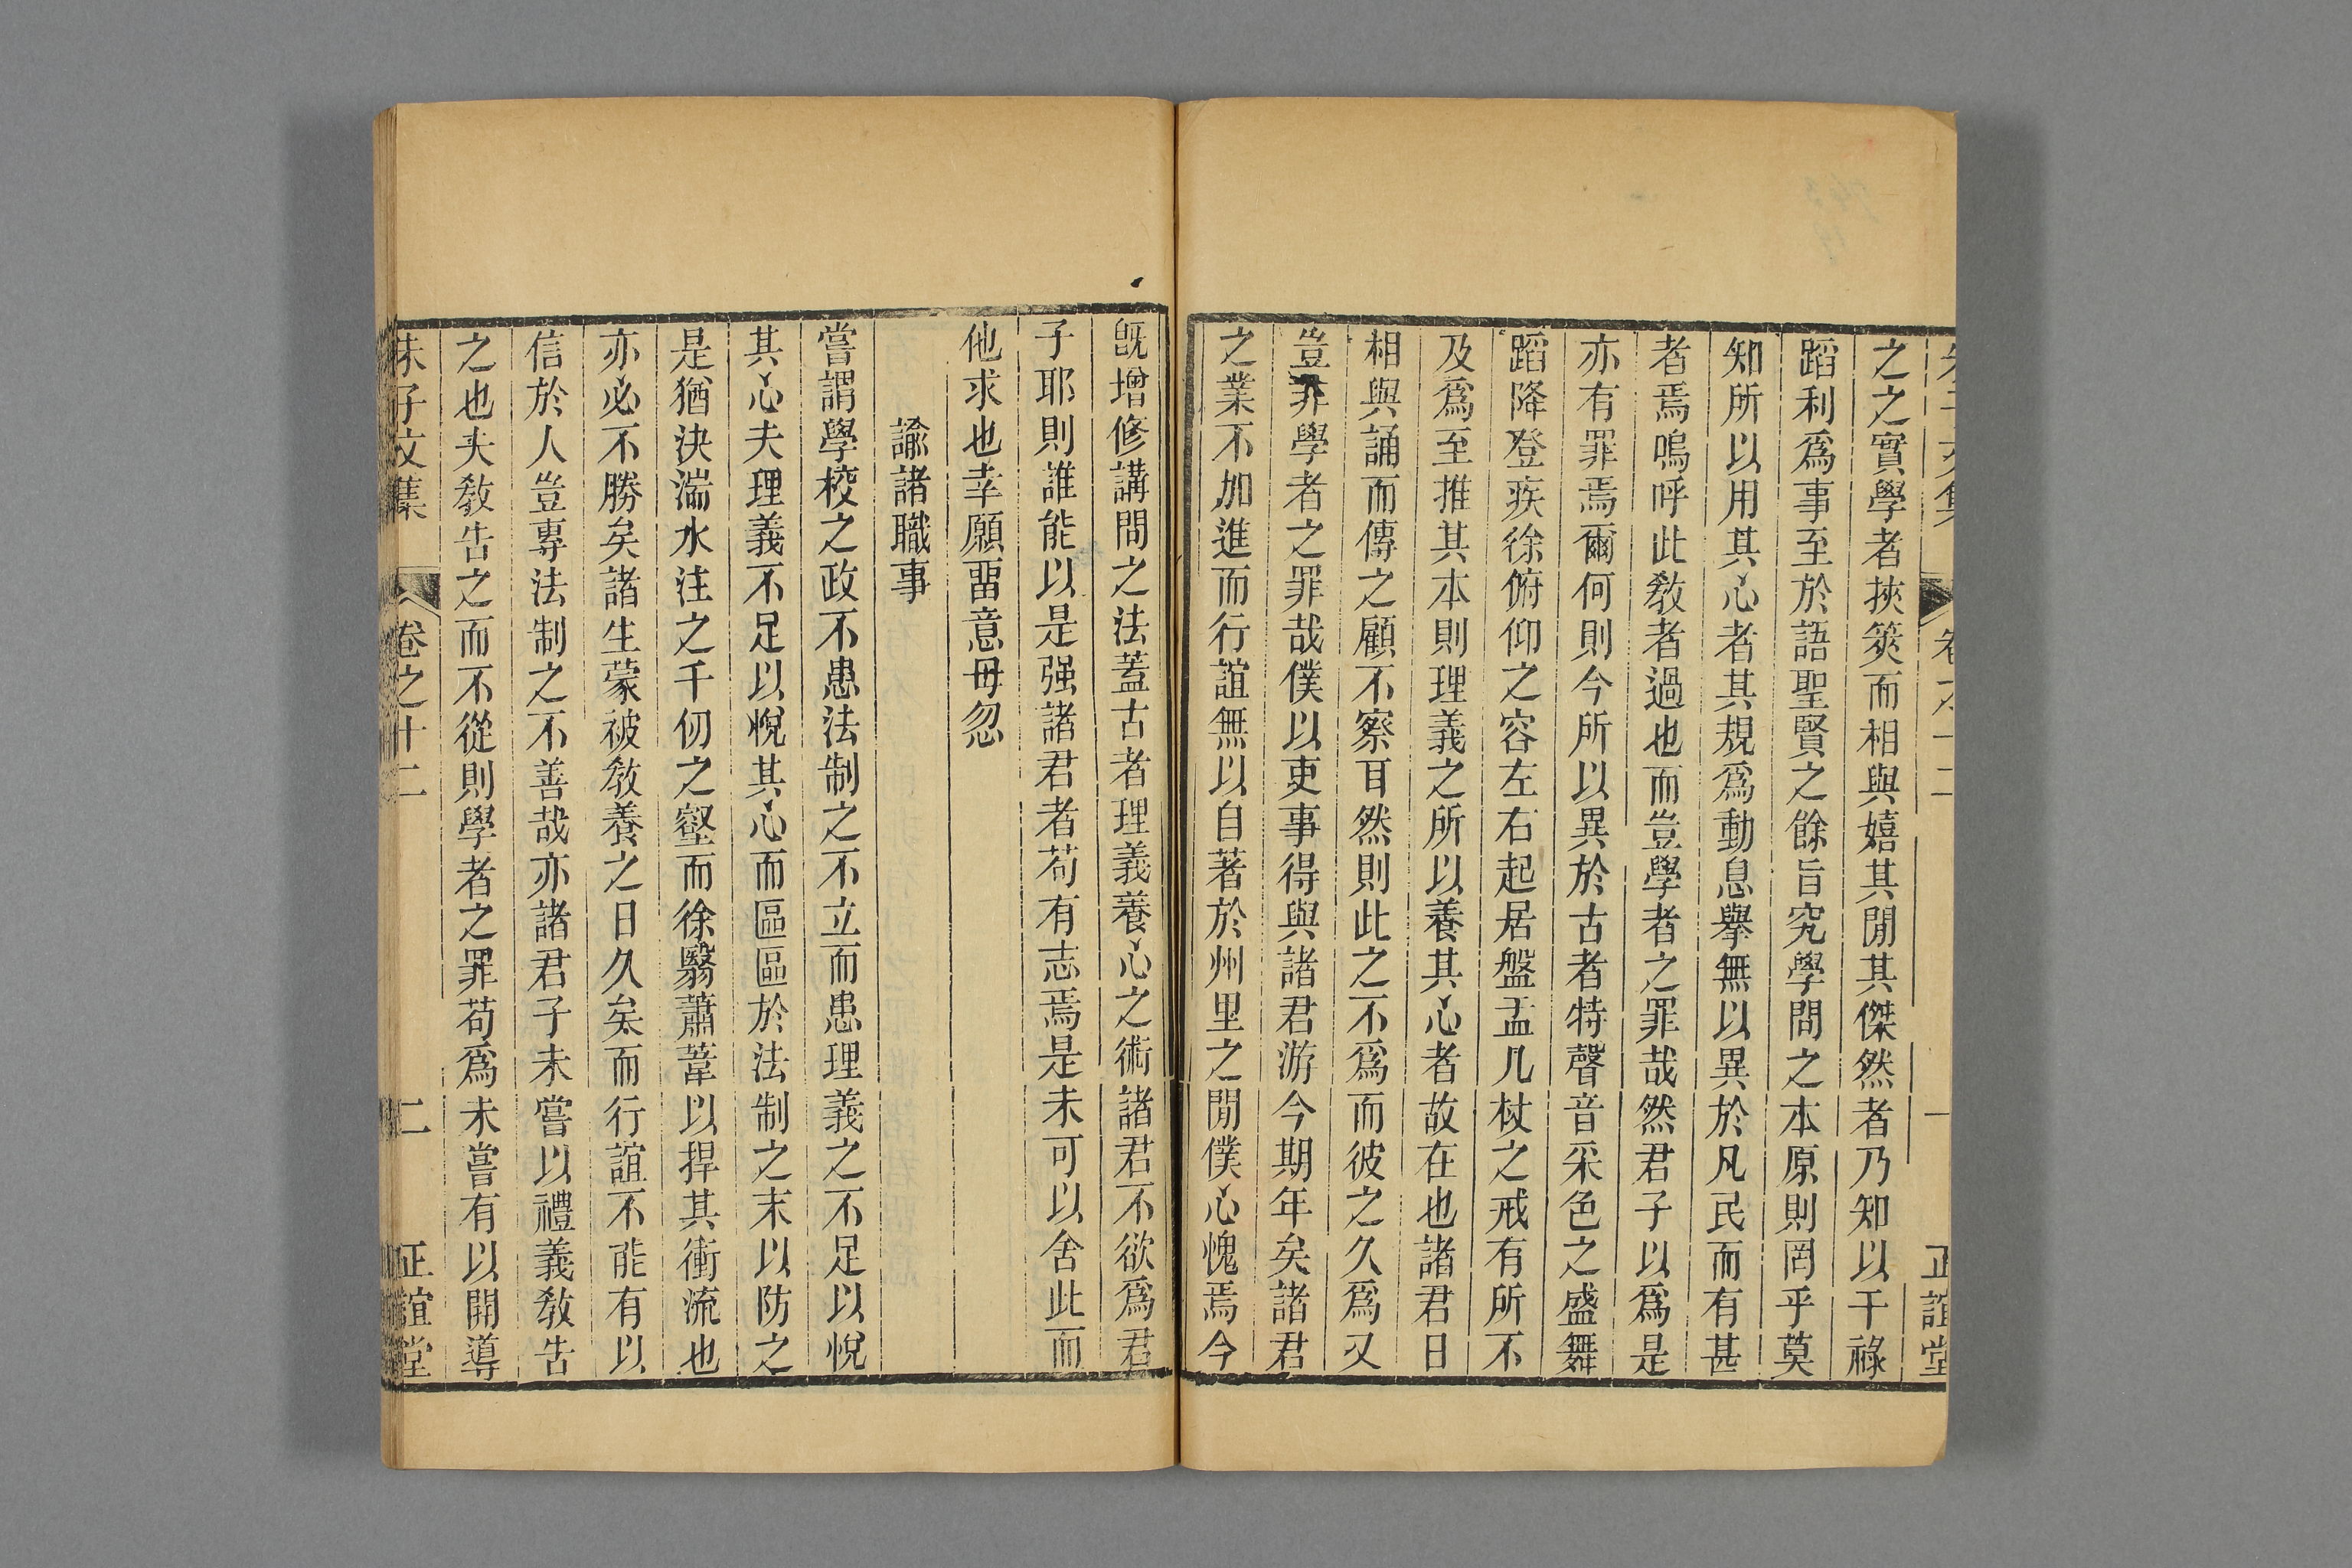 之之實學者挾筴而相與嬉其閒其傑然者乃知以干祿
蹈利爲事至於語聖賢之餘旨究學問之本原則罔乎莫
知所以用其心者其規爲動息擧無以異於凡民而有甚
者焉嗚呼此敎者過也而豈學者之罪哉然君子以爲是
亦有罪焉爾何則今所以異於古者特聲音采色之盛舞
蹈降登疾徐俯仰之容左右起居盤盂几杖之戒有所不
及爲至推其本則理義之所以養其心者故在也諸君日
相與誦而傳之顧不察耳然則此之不爲而彼之久爲又
豈非學者之罪哉僕以吏事得與諸君游今期年矣諸君
之業不加進而行誼無以自著於州里之閒僕心愧焉今
旣增修講問之法蓋古者理義養心之術諸君不欲爲君
子耶則誰能以是强諸君者苟有志焉是未可以舍此而
他求也幸願畱意毋忽
諭諸職事
嘗謂學校之政不患法制之不立而患理義之不足以悅
其心夫理義不足以悅其心而區區於法制之末以防之
是猶決湍水注之千仞之壑而徐翳蕭葦以捍其衝流也
亦必不勝矣諸生蒙被敎養之日久矣而行誼不能有以
信於人豈專法制之不善哉亦諸君子未嘗以禮義敎告
之也夫敎告之而不從則學者之罪苟爲未嘗有以開導
朱子文集 卷之十二 二 正誼堂